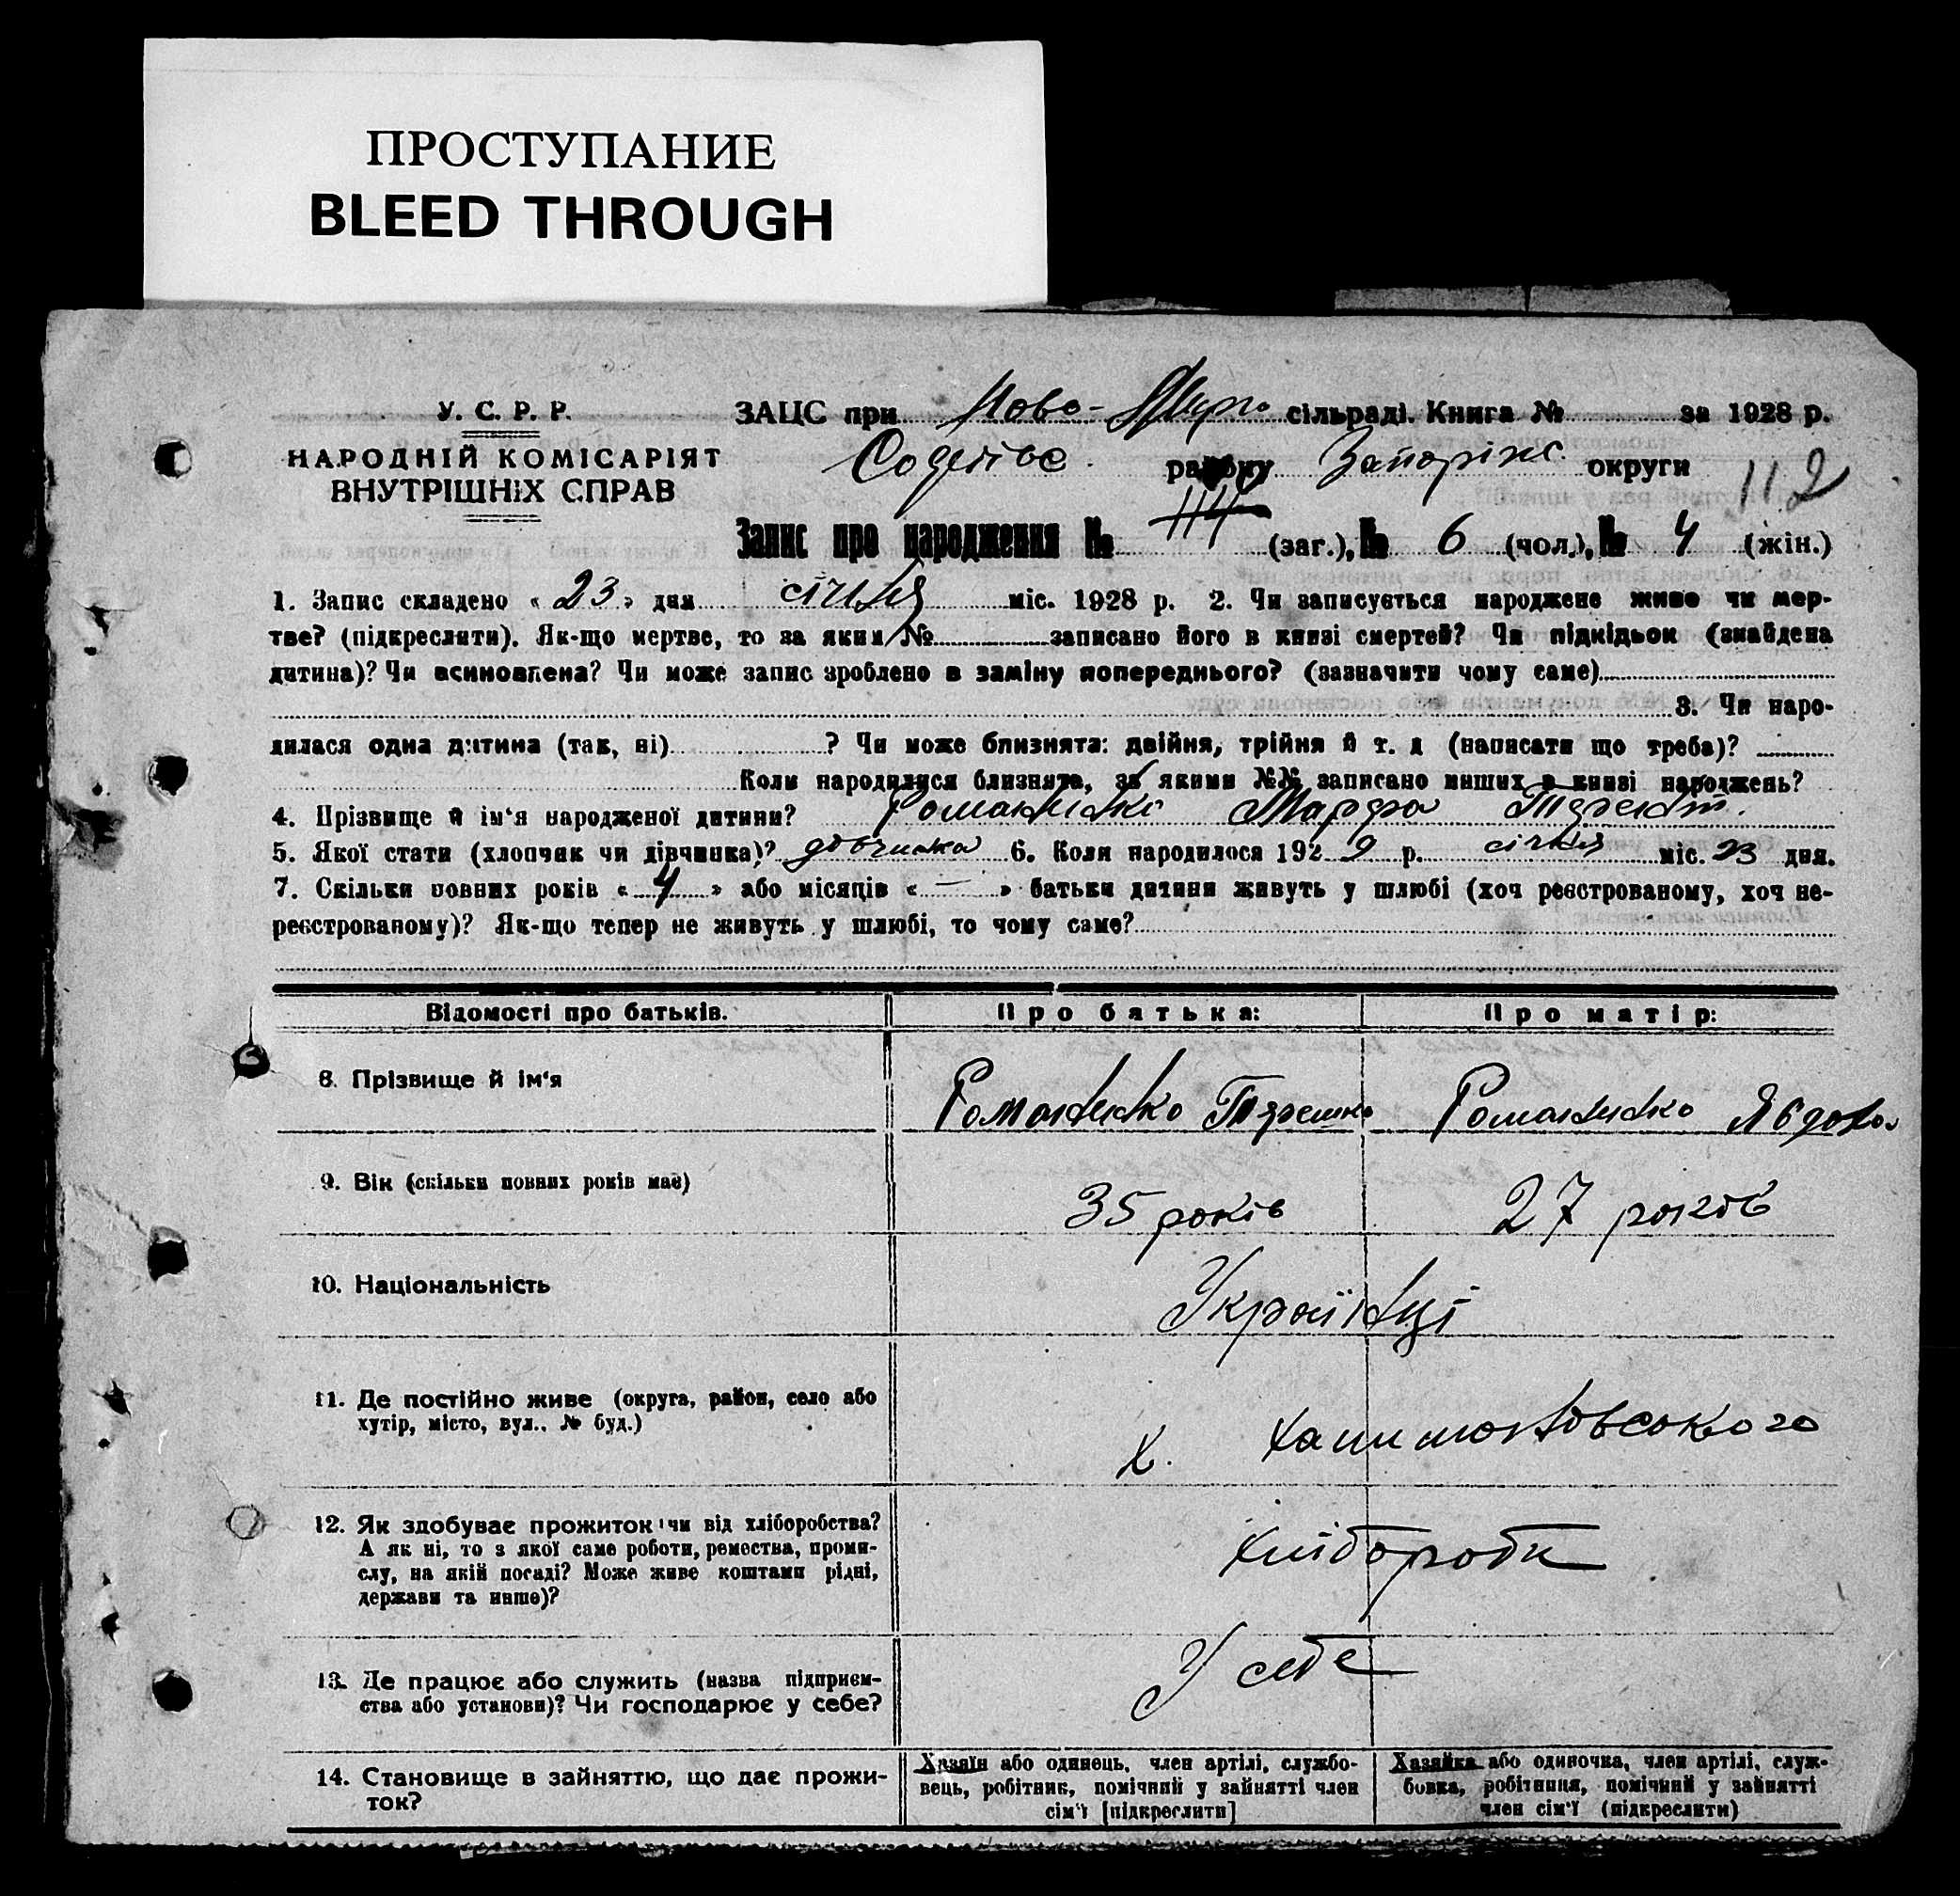 ПРОСТУПАНИЕ
BLEED THROUGH
У. С. Р. Р.
НАРОДНІЙ КОМІСАРІЯТ
ВНУТРІШНІХ СПРАВ
ЗАЦС при Ново- сільраді. Книга № за 1928 р.
району Запоріж. округи 112
Запис про народження № (заг.), № 6 (чол.), № 4 (жін.)
1. Запис складено « 23 » дня січня міс. 1928 р. 2. Чи записується народжене живе чи мер-
тве? (підкреслити). Як-що мертве, то за яким № записано його в книзі смертей? Чи підкідьок (знайдена
дитина)? Чи всиновлена? Чи може запис зроблено в заміну попереднього? (зазначити чому саме)
3. Чи наро-
дилася одна дитина (так, ні) ? Чи може близнята: двійня, трійня й т. д (написати що треба)?
Коли народилися близнята, за якими №№ записано инших в книзі народжень?
4. Прізвище й ім'я народженої дитини? Романенко Марфа Терент.
5. Якої стати (хлопчик чи дівчинка)? дівчинка 6. Коли народилося 192 9 р. січня міс. 23 дня.
7. Скільки повних років « 4 » або місяців « — » батьки дитини живуть у шлюбі (хоч реєстрованому, хоч не-
реєстрованому)? Як-що тепер не живуть у шлюбі, то чому саме?
Відомості про батьків. Про батька: Про матір:
8. Прізвище й ім'я Романенко Романенко Явдоха
9. Вік (скільки повних років має) 35 років 27 років
10. Національність Українці
11. Де постійно живе (округа, район, село або
хутір, місто, вул., № буд.) х.
12. Як здобуває прожиток чи від хліборобства? хлібороби
А як ні, то з якої саме роботи, ремества, проми-
слу, на якій посаді? Може живе коштами рідні,
держави та инше)?
13. Де працює або служить (назва підприєм- У себе
ства або установи)? Чи господарює у себе?
14. Становище в зайняттю, що дає прожи-
ток?
Хазяїн або одинець, член артілі, службо-
вець, робітник, помічний у зайнятті член
сім'ї [підкреслити]
Хазяйка або одиночка, член артілі, служ-
бовка, робітниця, помічний у зайнятті
член сім'ї (підкреслити)